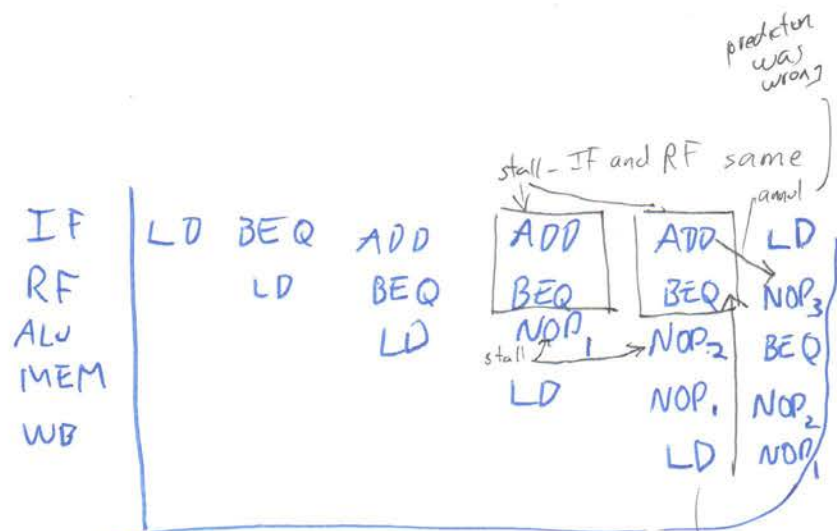 prediction
was
wrong
stall - IF and RF same
annul
IF LD BEQ ADD ADD ADD LD
RF LD BEQ BEQ BEQ NOP3
ALU LD NOP1 NOP2 BEQ
stall
MEM LD NOP1 NOP2
WB LD NOP1